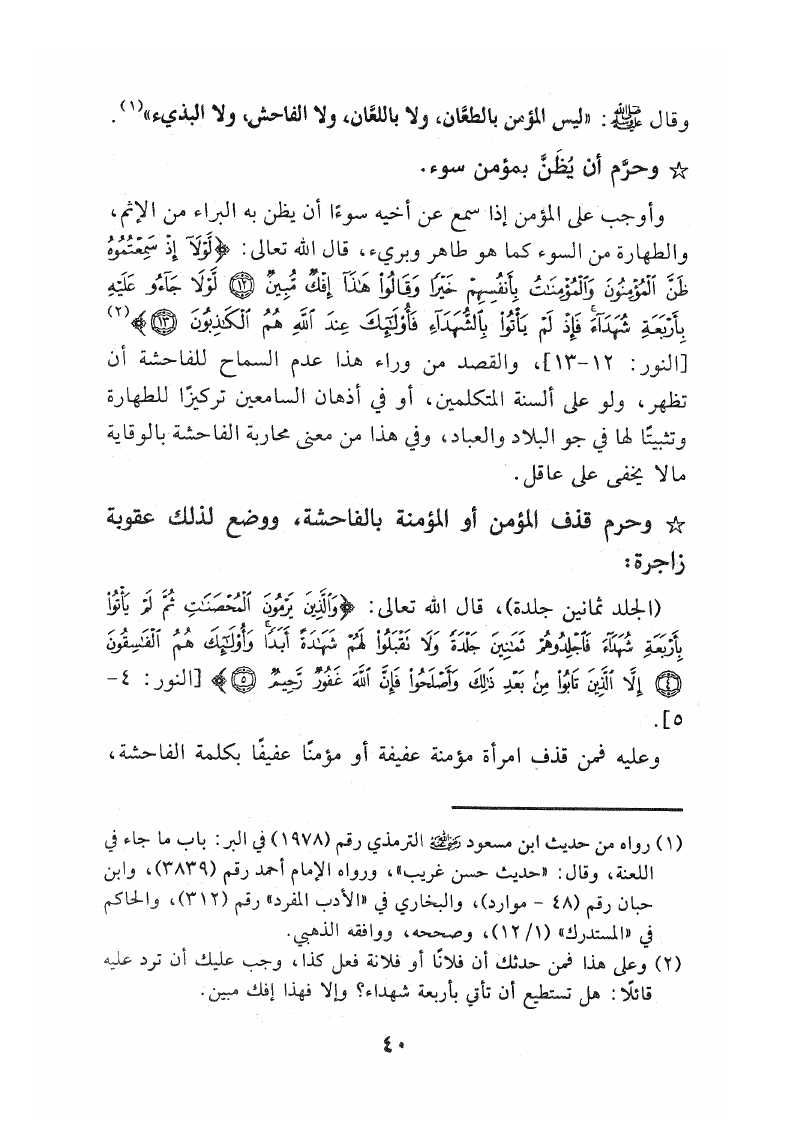 وقال ﷺ: «ليس المؤمن بالطعَّان، ولا باللعَّان، ولا الفاحش، ولا البذيء»(١).
☆ وحرَّم أن يُظَنَّ بمؤمن سوء.
وأوجب على المؤمن إذا سمع عن أخيه سوءًا أن يظن به البراء من الإثم،
والطهارة من السوء كما هو طاهر وبريء، قال الله تعالى: ﴿لَّوْلَآ إِذْ سَمِعْتُمُوهُ
ظَنَّ ٱلْمُؤْمِنُونَ وَٱلْمُؤْمِنَٰتُ بِأَنفُسِهِمْ خَيْرًا وَقَالُوا۟ هَٰذَآ إِفْكٌ مُّبِينٌ ١٢ لَّوْلَا جَآءُو عَلَيْهِ
بِأَرْبَعَةِ شُهَدَآءَ ۚ فَإِذْ لَمْ يَأْتُوا۟ بِٱلشُّهَدَآءِ فَأُو۟لَٰٓئِكَ عِندَ ٱللَّهِ هُمُ ٱلْكَٰذِبُونَ ١٣﴾(٢)
[النور: ١٢-١٣]، والقصد من وراء هذا عدم السماح للفاحشة أن
تظهر، ولو على ألسنة المتكلمين، أو في أذهان السامعين تركيزًا للطهارة
وتثبيتًا لها في جو البلاد والعباد، وفي هذا من معنى محاربة الفاحشة بالوقاية
مالا يخفى على عاقل.
☆ وحرم قذف المؤمن أو المؤمنة بالفاحشة، ووضع لذلك عقوبة
زاجرة:
(الجلد ثمانين جلدة)، قال الله تعالى: ﴿وَٱلَّذِينَ يَرْمُونَ ٱلْمُحْصَنَٰتِ ثُمَّ لَمْ يَأْتُوا۟
بِأَرْبَعَةِ شُهَدَآءَ فَٱجْلِدُوهُمْ ثَمَٰنِينَ جَلْدَةً وَلَا تَقْبَلُوا۟ لَهُمْ شَهَٰدَةً أَبَدًا ۚ وَأُو۟لَٰٓئِكَ هُمُ ٱلْفَٰسِقُونَ
٤ إِلَّا ٱلَّذِينَ تَابُوا۟ مِنۢ بَعْدِ ذَٰلِكَ وَأَصْلَحُوا۟ فَإِنَّ ٱللَّهَ غَفُورٌ رَّحِيمٌ ٥﴾ [النور: ٤-
٥].
وعليه فمن قذف امرأة مؤمنة عفيفة أو مؤمنًا عفيفًا بكلمة الفاحشة،
(١) رواه من حديث ابن مسعود رضي الله عنه الترمذي رقم (١٩٧٨) في البر: باب ما جاء في
اللعنة، وقال: «حديث حسن غريب»، ورواه الإمام أحمد رقم (٣٨٣٩)، وابن
حبان رقم (٤٨ - موارد)، والبخاري في «الأدب المفرد» رقم (٣١٢)، والحاكم
في «المستدرك» (١/ ١٢)، وصححه، ووافقه الذهبي.
(٢) وعلى هذا فمن حدثك أن فلانًا أو فلانة فعل كذا، وجب عليك أن ترد عليه
قائلًا: هل تستطيع أن تأتي بأربعة شهداء؟ وإلا فهذا إفك مبين.
٤٠